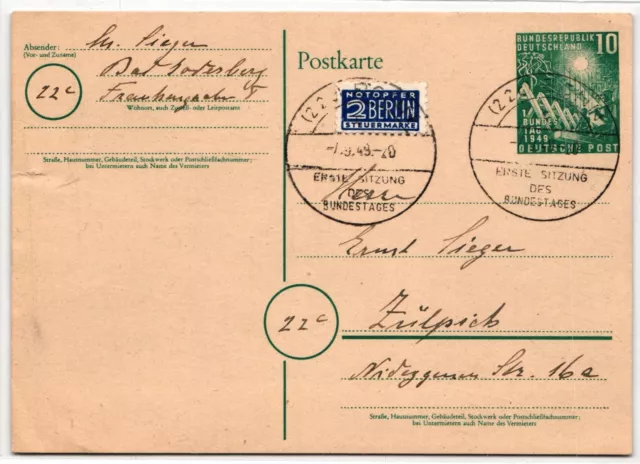 Absender:
(Vor- und Zuname)
Sieger
Bad Godesberg
22c
Wohnort, auch Zustell- oder Leitpostamt
Straße, Hausnummer, Gebäudeteil, Stockwerk oder Postschließfachnummer;
bei Untermietern auch Name des Vermieters
Postkarte
NOTOPFER
2 BERLIN
STEUERMARKE
-7.9.49.-20
ERSTE SITZUNG
DES
BUNDESTAGES
BUNDESREPUBLIK
DEUTSCHLAND
10
1.
BUNDES
TAG
1949
DEUTSCHE POST
ERSTE SITZUNG
DES
BUNDESTAGES
Herrn
Ernst Sieger
22c
Zülpich
Nideggener Str. 16a
Straße, Hausnummer, Gebäudeteil, Stockwerk oder Postschließfachnummer;
bei Untermietern auch Name des Vermieters